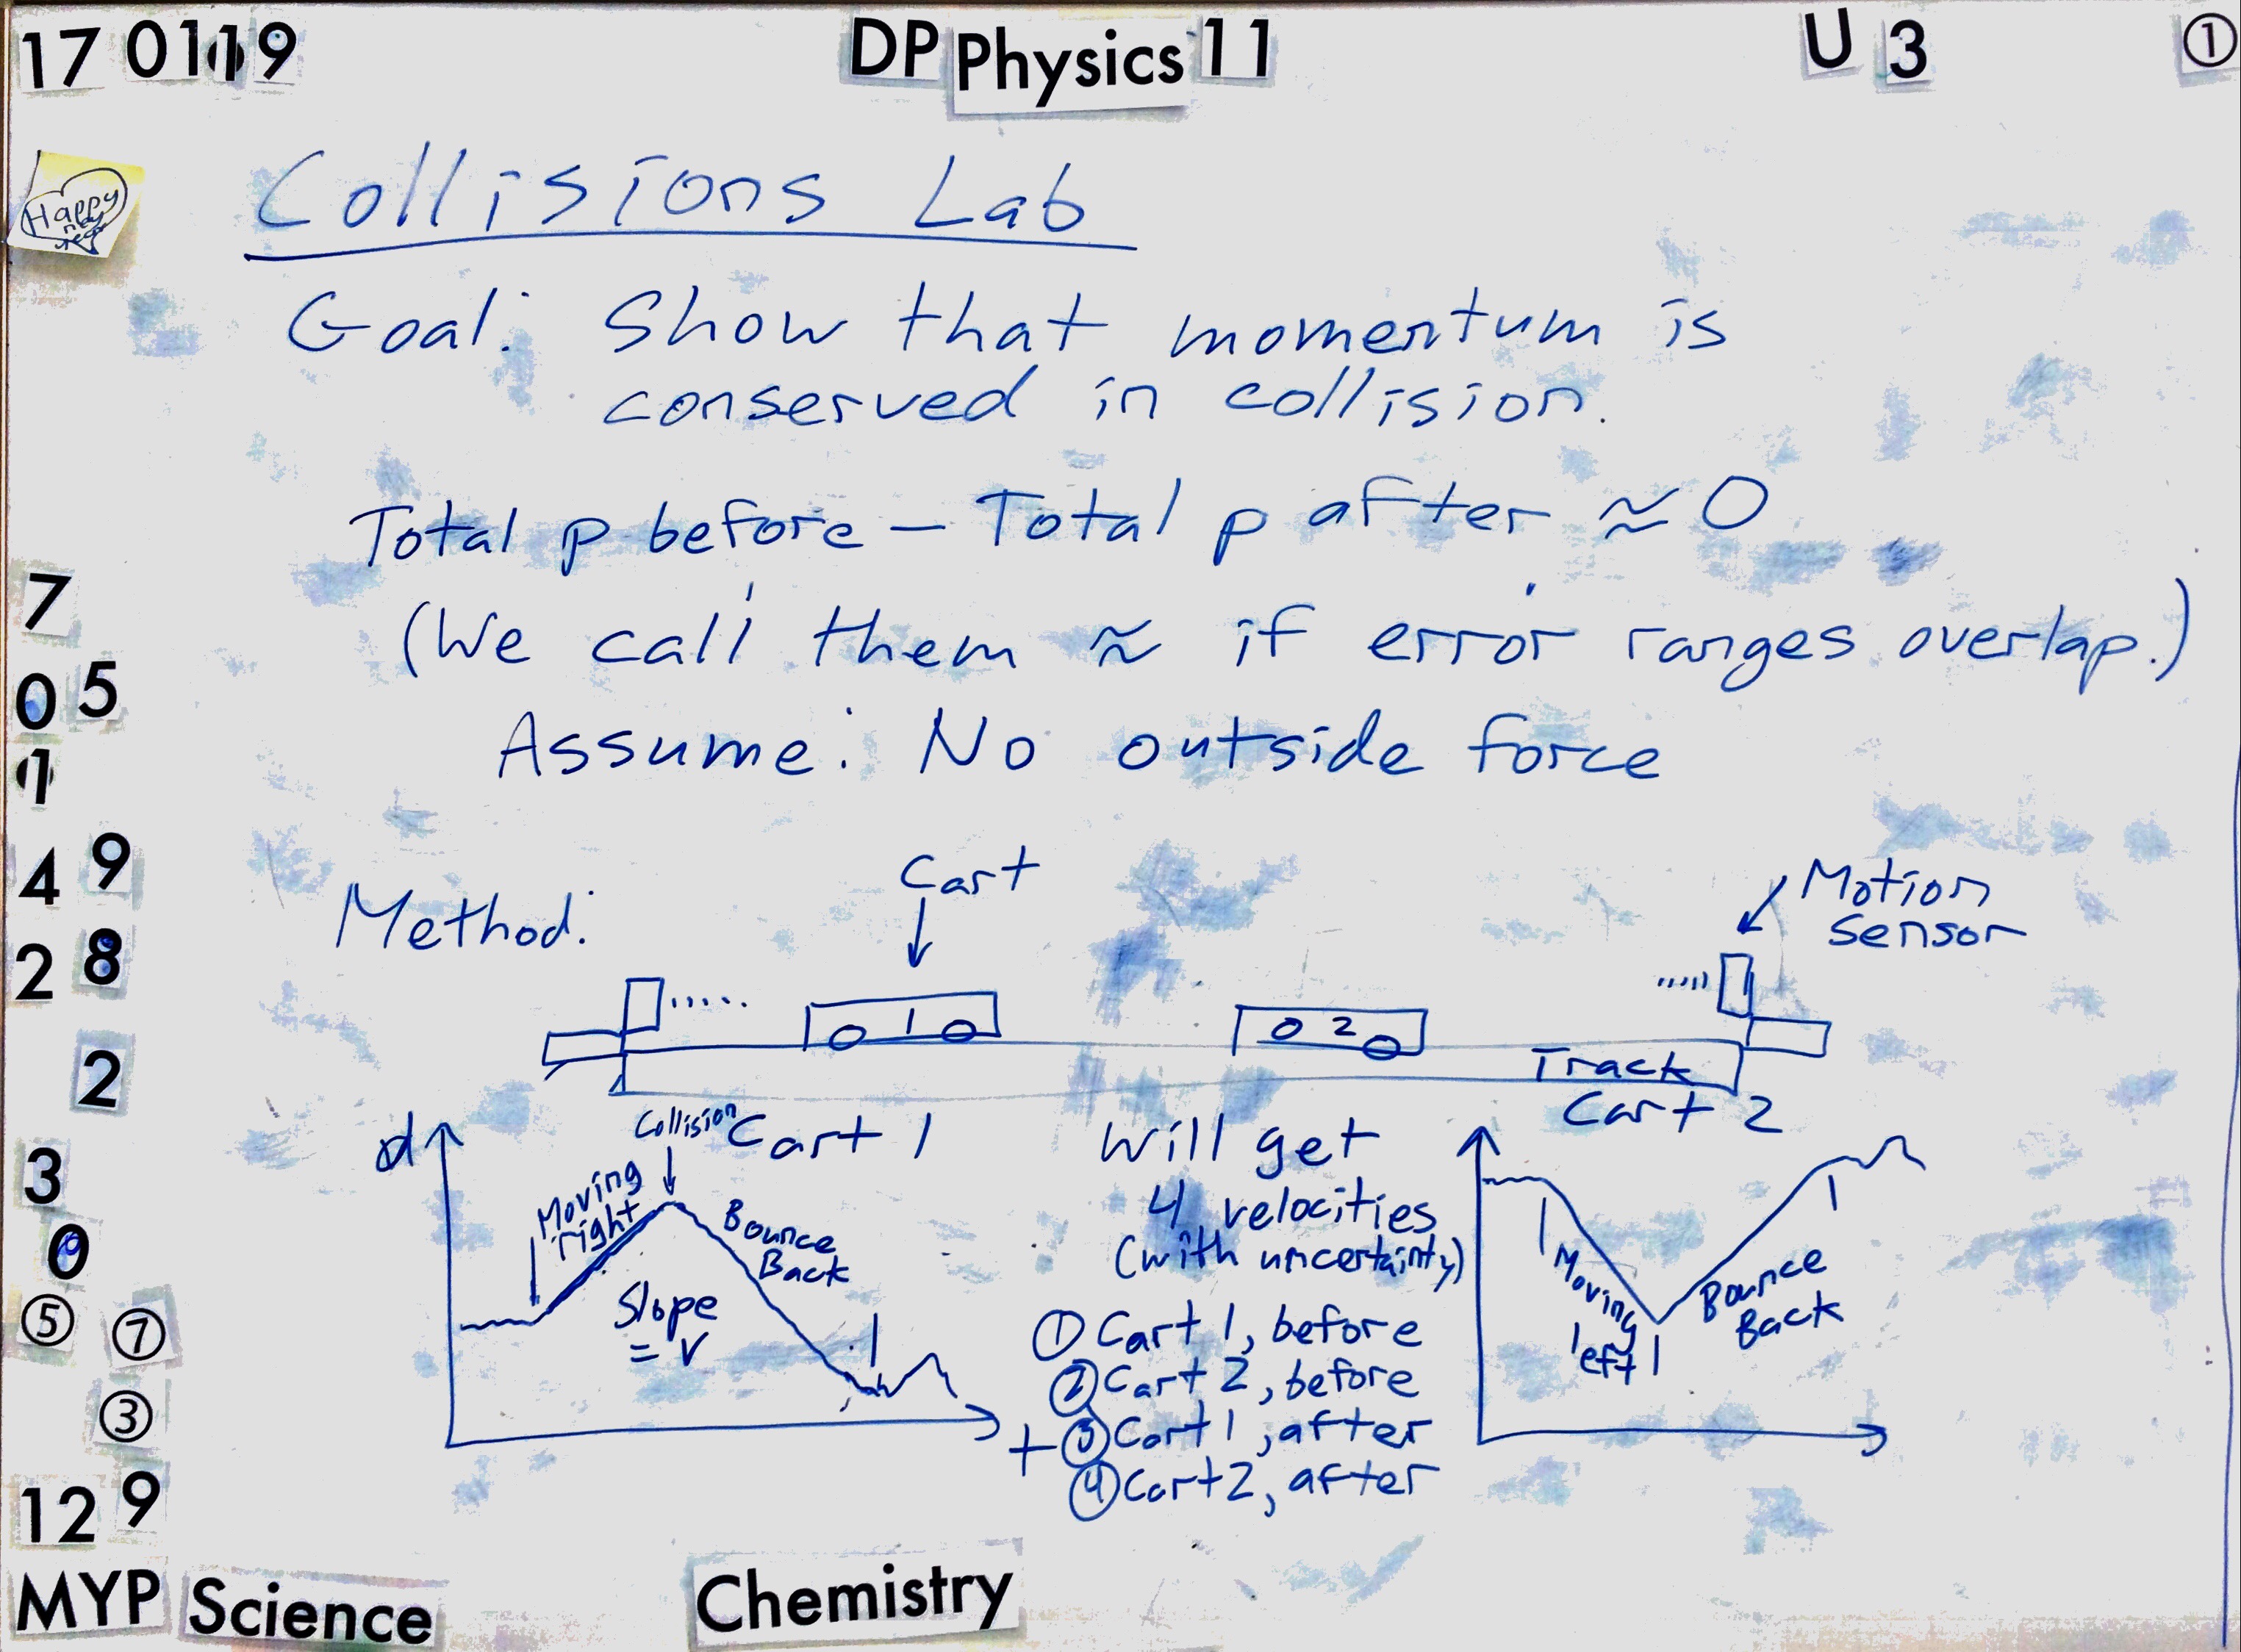 17 01 19 DP Physics 11 U 3 ①
Happy new year
Collisions Lab
Goal: Show that momentum is
conserved in collision.
Total p before – Total p after ≈ 0
(We call them ≈ if error ranges overlap.)
Assume: No outside force
Method:
Cart
Motion
Sensor
1
2
Track
d
Collision
Cart 1
Moving
right
Bounce
Back
Slope
= V
Will get
4 velocities
(with uncertainty)
① Cart 1, before
② Cart 2, before
+ ③ Cart 1, after
④ Cart 2, after
Cart 2
Moving
left
Bounce
Back
7
0 5
1
4 9
2 8
2
3
0
⑤ ⑦
③
12 9
MYP Science Chemistry